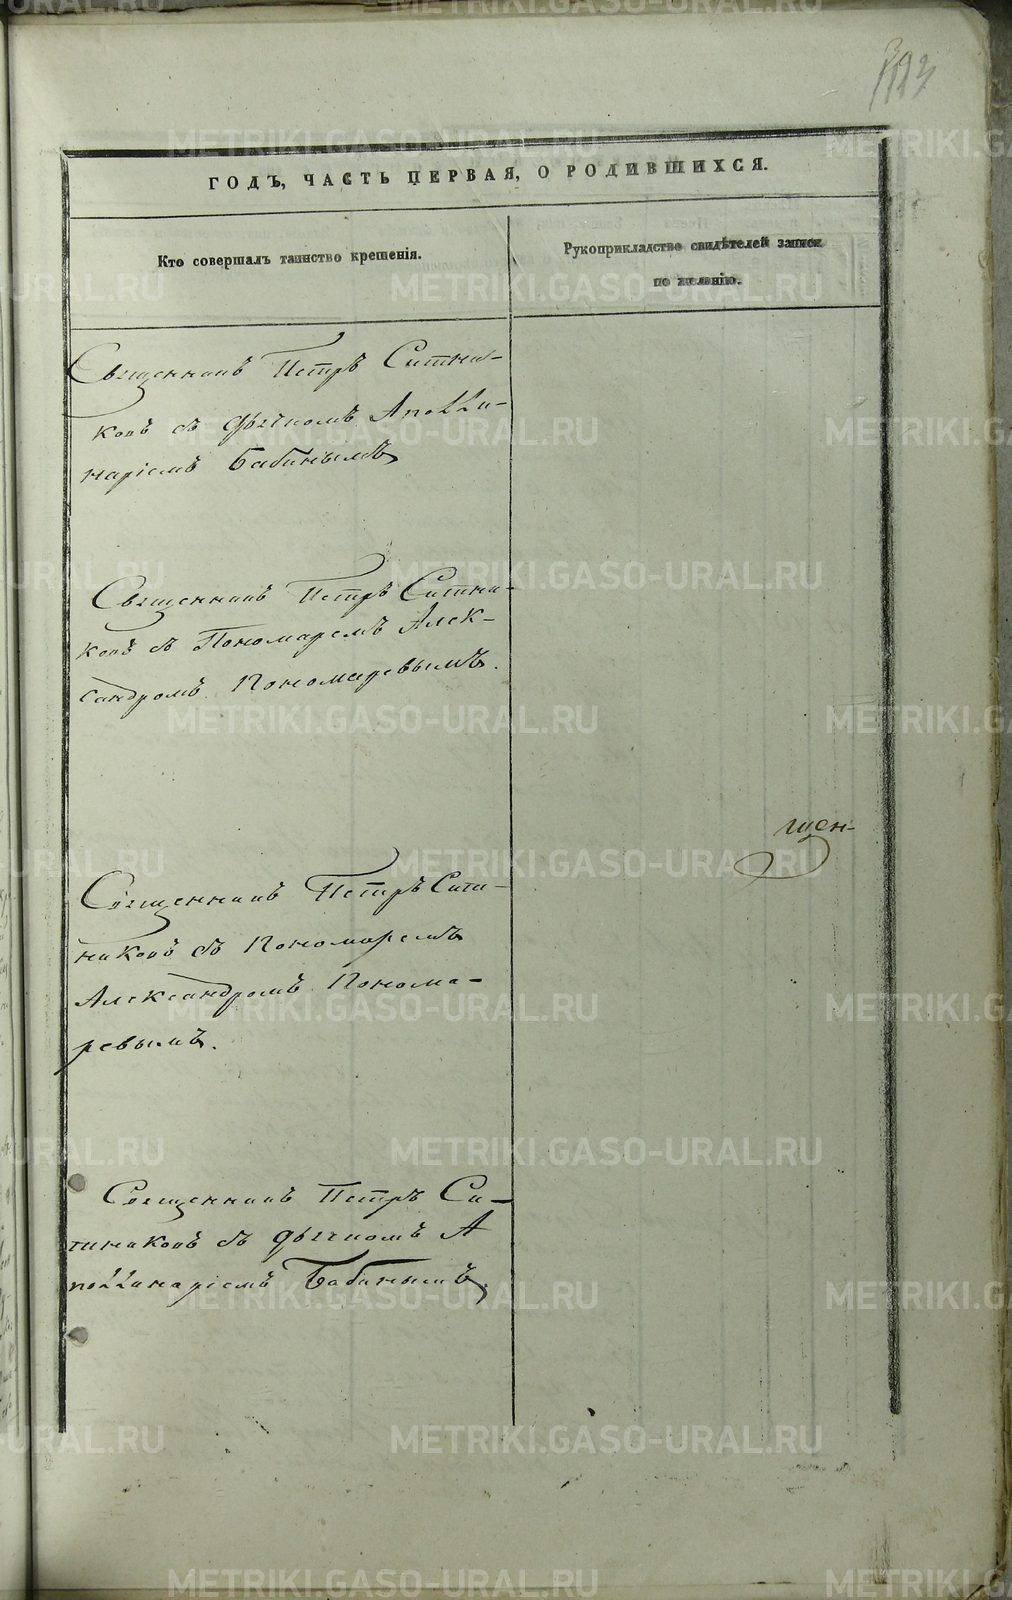 ГОДЪ, ЧАСТЬ ПЕРВАЯ, О РОДИВШИХСЯ.
Кто совершалъ таинство крещенія.
Рукоприкладство свидѣтелей записи
по желанію.
Священникъ Петръ Ситни-
ковъ съ дьячкомъ Аполли-
наріемъ Бабинымъ
Священникъ Петръ Ситни-
ковъ съ Пономаремъ Алек-
сандромъ Пономаревымъ.
щен-
Священникъ Петръ Сит-
никовъ съ Пономаремъ
Александромъ Понома-
ревымъ.
Священникъ Петръ Си-
тниковъ съ дьячкомъ А
поллинаріемъ Бабинымъ
METRIKI.GASO-URAL.RU